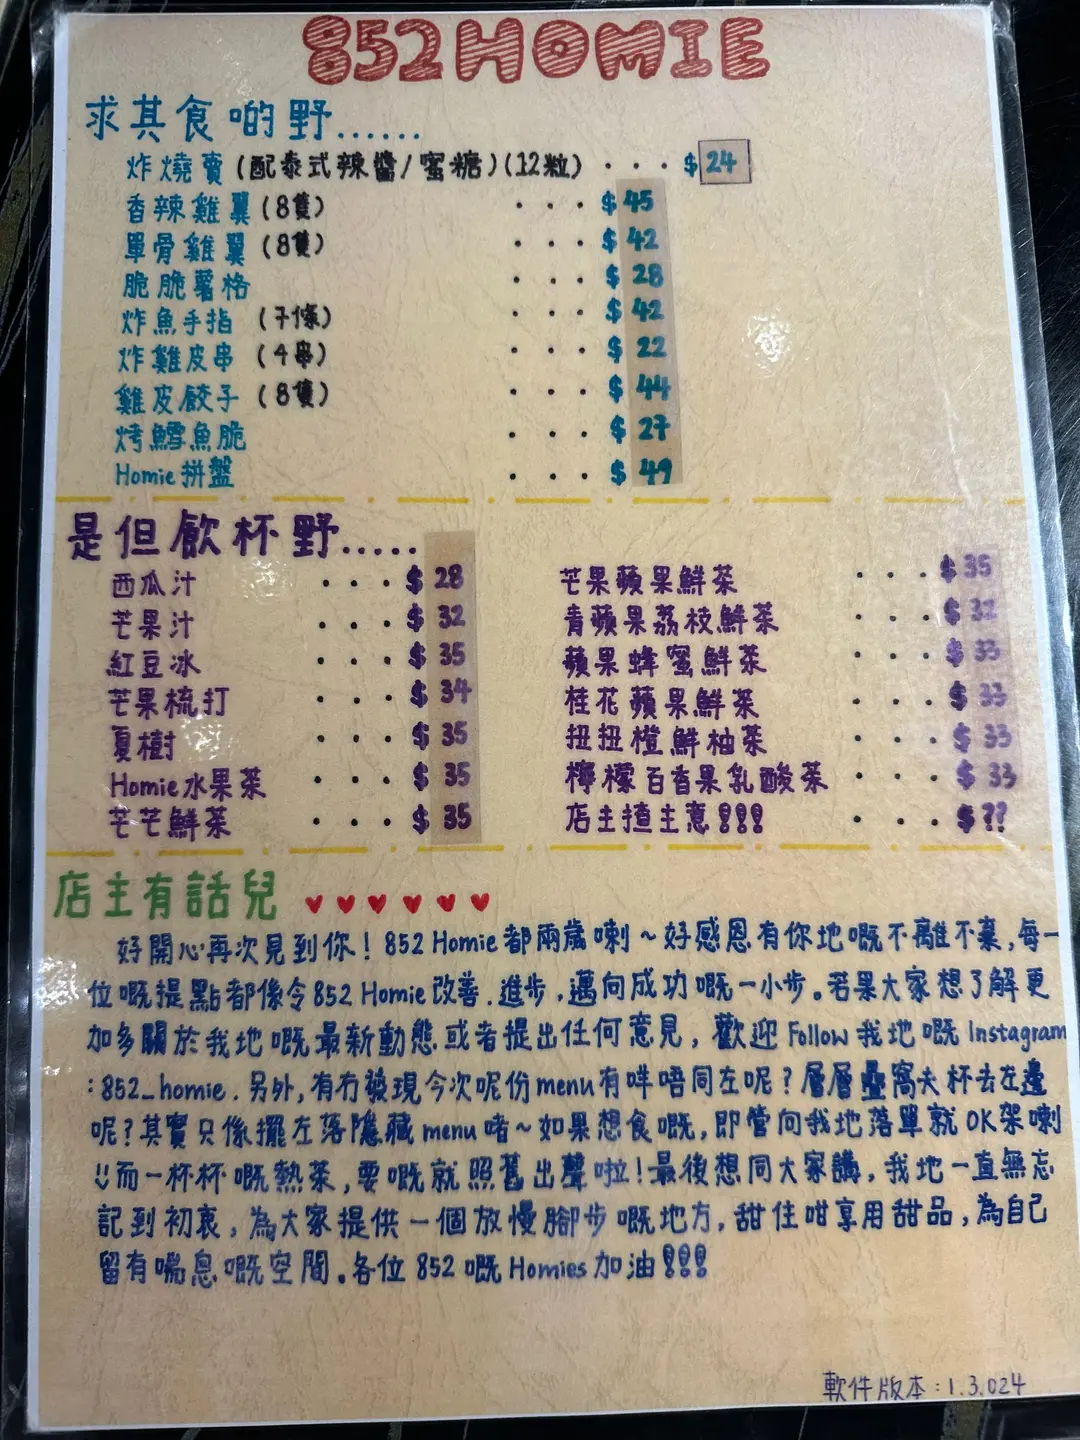 852HOMIE
求其食啲野......
炸燒賣(配泰式辣醬/蜜糖)(12粒) ... $24
香辣雞翼(8隻) ... $45
單骨雞翼(8隻) ... $42
脆脆薯格 ... $28
炸魚手指(7條) ... $42
炸雞皮串(4串) ... $22
雞皮餃子(8隻) ... $44
烤鱈魚脆 ... $27
Homie拼盤 ... $49
是但飲杯野.....
西瓜汁 ... $28
芒果汁 ... $32
紅豆冰 ... $35
芒果梳打 ... $34
夏樹 ... $35
Homie水果茶 ... $35
芒芒鮮茶 ... $35
芒果蘋果鮮茶 ... $35
青蘋果荔枝鮮茶 ... $32
蘋果蜂蜜鮮茶 ... $33
桂花蘋果鮮茶 ... $33
扭扭橙鮮柚茶 ... $33
檸檬百香果乳酸茶 ... $33
店主揸主意!!! ... $??
店主有話兒 ♥♥♥♥♥♥
好開心再次見到你! 852 Homie都兩歲喇~好感恩有你地嘅不離不棄,每一
位嘅提點都係令852 Homie改善.進步,邁向成功嘅一小步。若果大家想了解更
加多關於我地嘅最新動態或者提出任何意見,歡迎Follow我地嘅Instagram
:852_homie.另外,有冇發現今次呢份menu有咩唔同左呢?層層疊窩夫杯去左邊
呢?其實只係擺左落隱藏menu啫~如果想食嘅,即管向我地落單就OK架喇
而一杯杯嘅熱茶,要嘅就照舊出聲啦!最後想同大家講,我地一直無忘
記到初衷,為大家提供一個放慢腳步嘅地方,甜住咁享用甜品,為自己
留有喘息嘅空間。各位852嘅Homies加油!!!
軟件版本:1.3.024